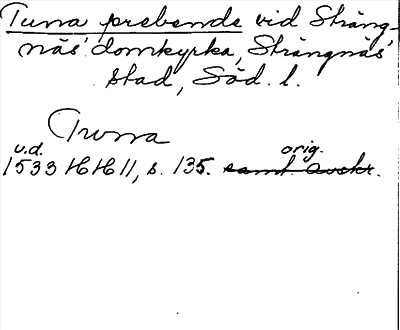 Tuna prebende vid Sträng-
näs domkyrka, Strängnäs
stad, Söd. l.
Twna
u.d. orig.
1533 HH 11, s. 135. samt avskr.